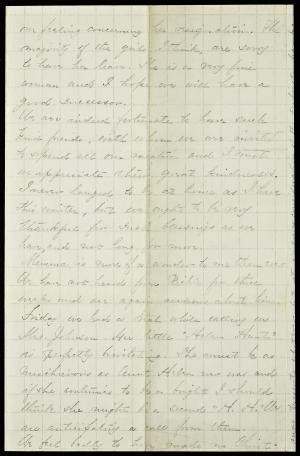 our feeling concerning her resignation. The
majority of the girls, I think, are sorry
to have her leave. She is a very fine
woman and I hope we will have a
good successor.
We are indeed fortunate to have such
kind friends, with whom we are invited
to spend all our vacation and I trust
we appreciate their great kindness.
I never longed to be at home as I have
this winter, but we ought to be very
thankful for such blessings as we
have, and not long for more.
Mamma is more of a wonder to me than ever
We have not heard from for three
weeks and are again anxious about him.
Friday we had a treat while calling on
Mrs. Johnson. Her little "Helen
is perfectly bewitching. She must be as
mischievous as Aunt Helen was and
if she continues to be as bright I should
think she might be a second "A. H." We
are anticipating a call from them.
We feel badly to be made no Christ-